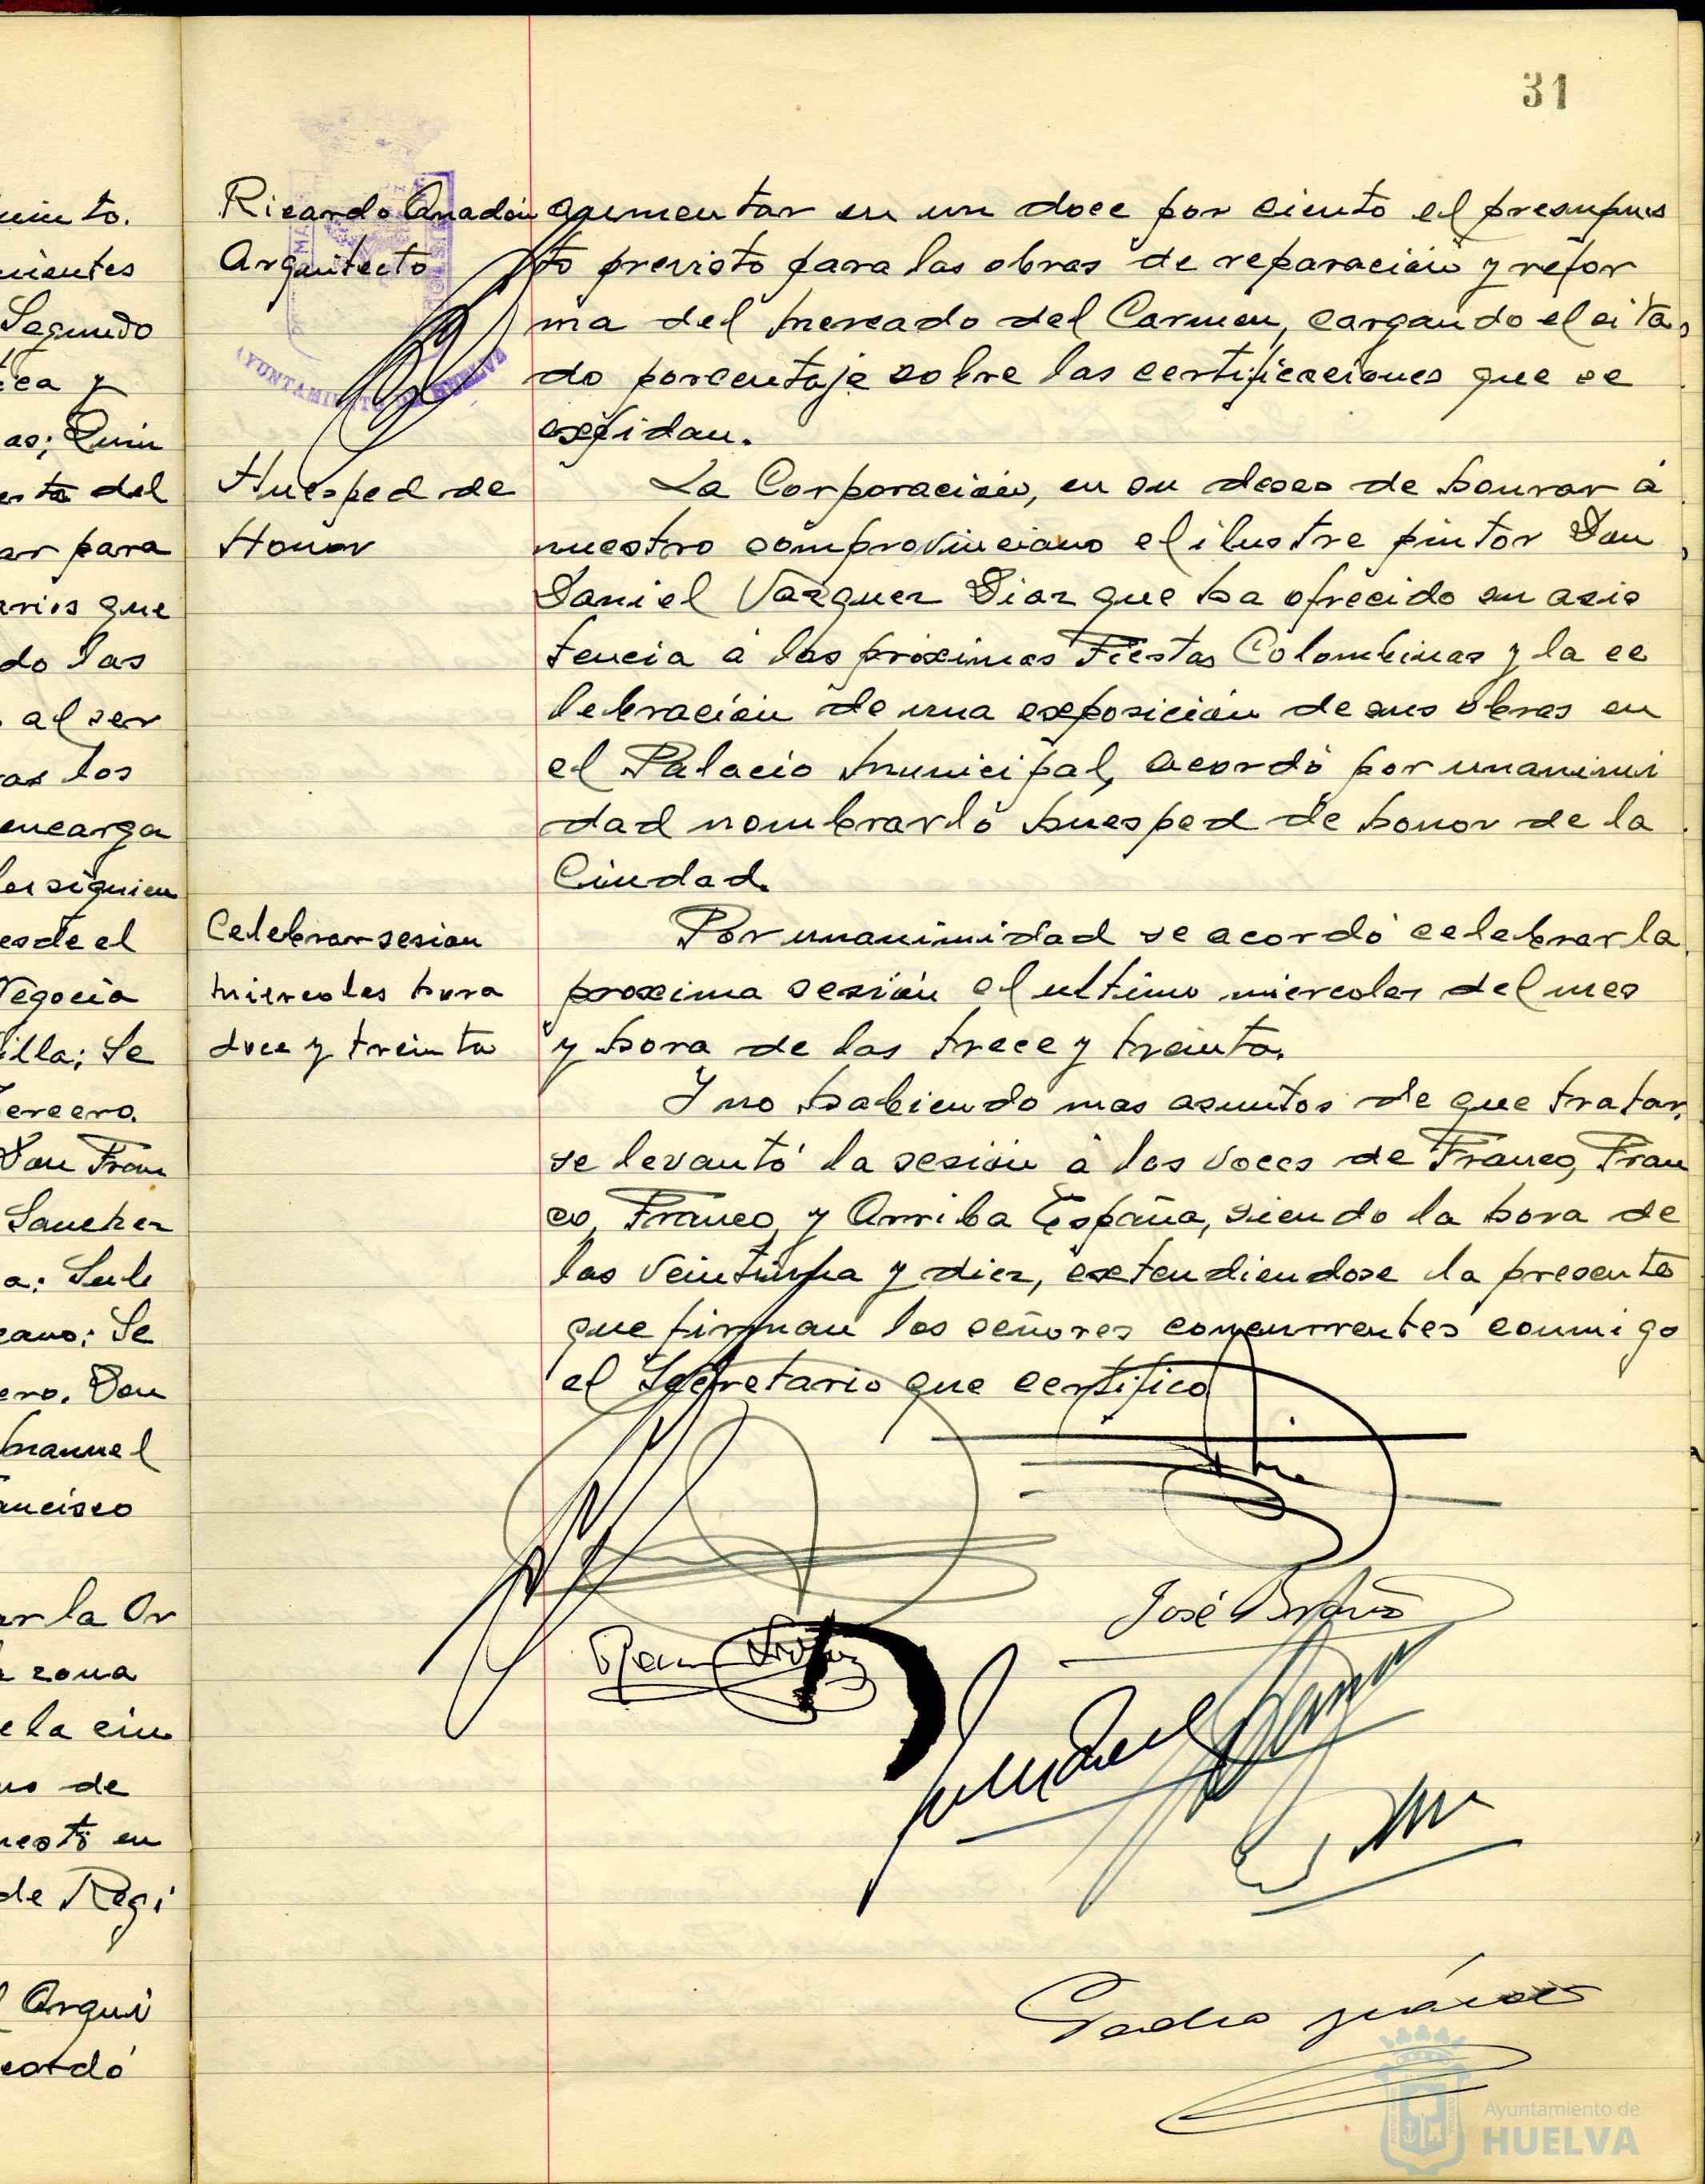 31
uinto.
nientes
Segundo
tea y
as; Quin
erta del
ar para
arios que
do las
al ser
ras los
encarga
les siguien
esde el
Negocia
illa; Se
ercero.
Don Fran
Sanchez
a; Sub
cano; Se
ero. Don
Manuel
ancisco
ar la Or
a zona
e la ciu
no de
uesto en
de Regi
l Arqui
cordó
Ricardo Anadón
Arquitecto
AYUNTAMIENTO DE HUELVA
Huesped de
Honor
Celebrar sesion
miercoles hora
doce y treinta
aumentar en un doce por ciento el presupues
to previsto para las obras de reparación y refor
ma del Mercado del Carmen, cargando el cita
do porcentaje sobre las certificaciones que se
expidan.
La Corporación, en su deseo de honrar á
nuestro comprovinciano el ilustre pintor Don
Daniel Vazquez Diaz que ha ofrecido su asis
tencia á las próximas Fiestas Colombinas y la ce
lebración de una exposición de sus obras en
el Palacio Municipal, acordó por unanimi
dad nombrarló huesped de honor de la
Ciudad.
Por unanimidad se acordó celebrar la
proxima sesión el ultimo miercoles del mes
y hora de las trece y treinta.
Y no habiendo mas asuntos de que tratar,
se levantó la sesión á los voces de Franco, Fran
co, Franco, y Arriba España, siendo la hora de
las veintiuna y diez, extendiendose la presente
que firman los señores concurrentes conmigo
el Secretario que certifico
José
Ayuntamiento de
HUELVA